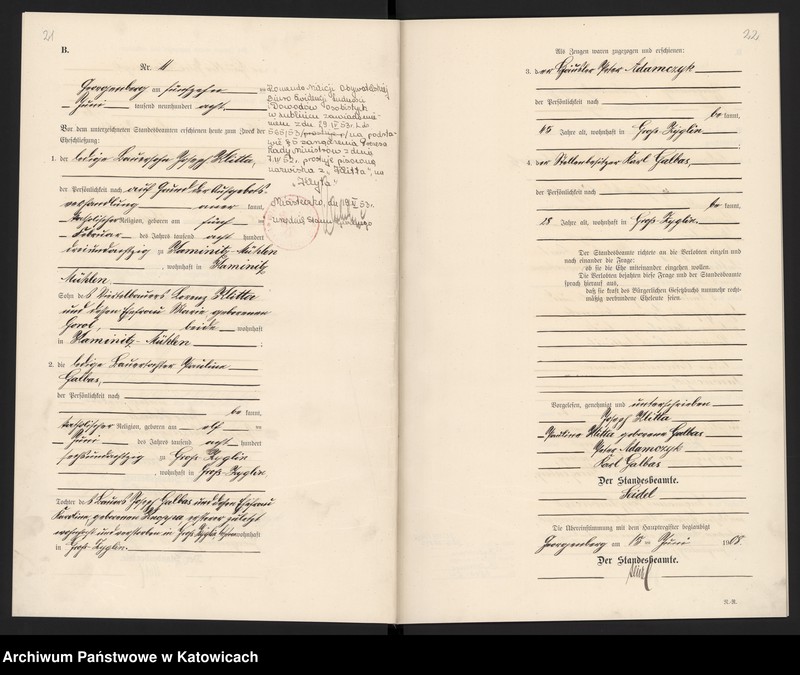 21
B.
Nr. 11
Georgenberg am fünfzehn ten
Juni tausend neunhundert acht
Vor dem unterzeichneten Standesbeamten erschienen heute zum Zweck der
Eheschließung:
1. der ledige Bauersohn Josef Klitta,
der Persönlichkeit nach auf Grund der Aufgebots-
verhandlung aner kannt,
katholischer Religion, geboren am fünf ten
Februar des Jahres tausend acht hundert
dreiundachtzig zu Kaminitz-Mühlen
, wohnhaft in Kaminitz
Mühlen
Sohn des Viertelbauers Lorenz Klitta
und dessen Ehefrau Marie, geborenen
Gorol, beide wohnhaft
in Kaminitz-Mühlen ;
2. die ledige Bauertochter Pauline
Galbas,
der Persönlichkeit nach
be kannt,
katholischer Religion, geboren am elf ten
Juni des Jahres tausend acht hundert
sechsundachtzig zu Groß-Zyglin
, wohnhaft in Groß-Zyglin
Tochter des Bauers Josef Galbas und dessen Ehefrau
Karoline, geborenen ersterer zuletzt
wohnhaft und verstorben in Groß Zyglin, letztere wohnhaft
in Groß-Zyglin.
Komenda Milicji Obywatelskiej
Biuro Ewidencji Ludności
i Dowodów Osobistych
w Lublińcu zawiadomie-
niem z dn. 29.IV.53 r. L.dz.
568/53 prostuje na podsta-
wie § 6 zarządzenia Prezesa
Rady Ministrów z dnia
7.IV.52 r. prostuje pisownię
nazwiska z "Klitta" na
"Klyta"
Miasteczko, dn. 19.V.53r.
Urzędnik Stanu Cywilnego
22
Als Zeugen waren zugezogen und erschienen:
3. der Häusler Peter Adamczyk
der Persönlichkeit nach
be kannt,
65 Jahre alt, wohnhaft in Groß-Zyglin
;
4. der Stellenbesitzer Karl Galbas,
der Persönlichkeit nach
be kannt,
28 Jahre alt, wohnhaft in Groß-Zyglin.
Der Standesbeamte richtete an die Verlobten einzeln und
nach einander die Frage:
ob sie die Ehe miteinander eingehen wollen.
Die Verlobten bejahten diese Frage und der Standesbeamte
sprach hierauf aus,
daß sie kraft des Bürgerlichen Gesetzbuchs nunmehr recht-
mäßig verbundene Eheleute seien.
Vorgelesen, genehmigt und unterschrieben
Josef Klitta
Paulina Klitta geborene Galbas
Peter Adamczyk
Karl Galbas
Der Standesbeamte.
Seidel
Die Übereinstimmung mit dem Hauptregister beglaubigt
Georgenberg am 15 ten Juni 1908.
Der Standesbeamte.
R.-R.
Archiwum Państwowe w Katowicach